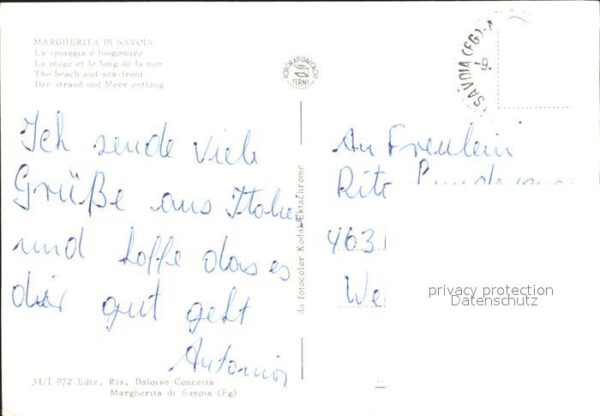 MARGHERITA DI SAVOIA
La spiaggia e lungomare
La plage et le long de la mer
The beach and sea-front
Der strand und Meer entlang
SAVOIA (FG)
Ich sende viele
Grüße aus Italien
und hoffe das es
dir gut geht
Antonio
da fotocolor Kodak Ektachrome
An Freulein
Rita
463
We
privacy protection
Datenschutz
31/1 972 Ediz. Ris. Daloiso Concetta
Margherita di Savoia (Fg)